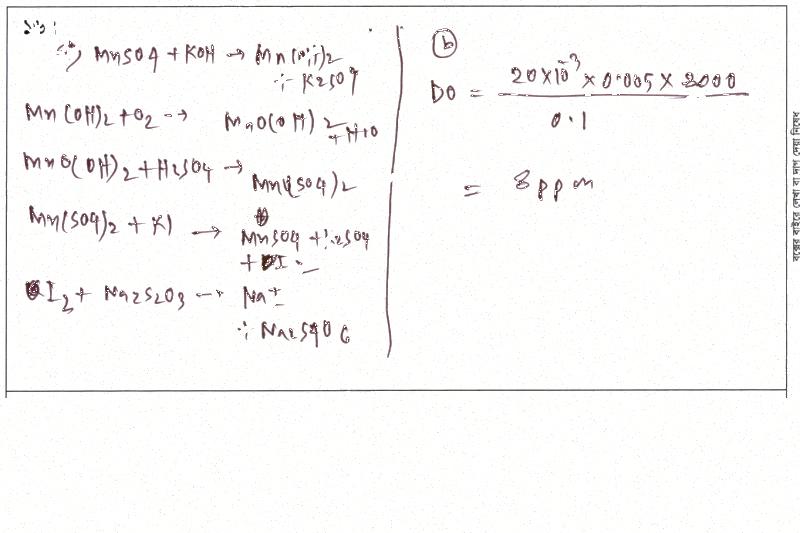 MnSO4 + KOH → Mn(OH)2
+ K2SO4
Mn(OH)2 + O2 → MnO(OH)2 + H2O
MnO(OH)2 + H2SO4 → Mn(SO4)2
Mn(SO4)2 + KI → MnSO4 + K2SO4
+ I2
I2 + Na2S2O3 → NaI
+ Na2S4O6
(b)
DO = 20×10^-3 × 0.005 × 8000 / 0.1
= 8 ppm
বক্সের বাইরে লেখা বা দাগ দেয়া নিষেধ